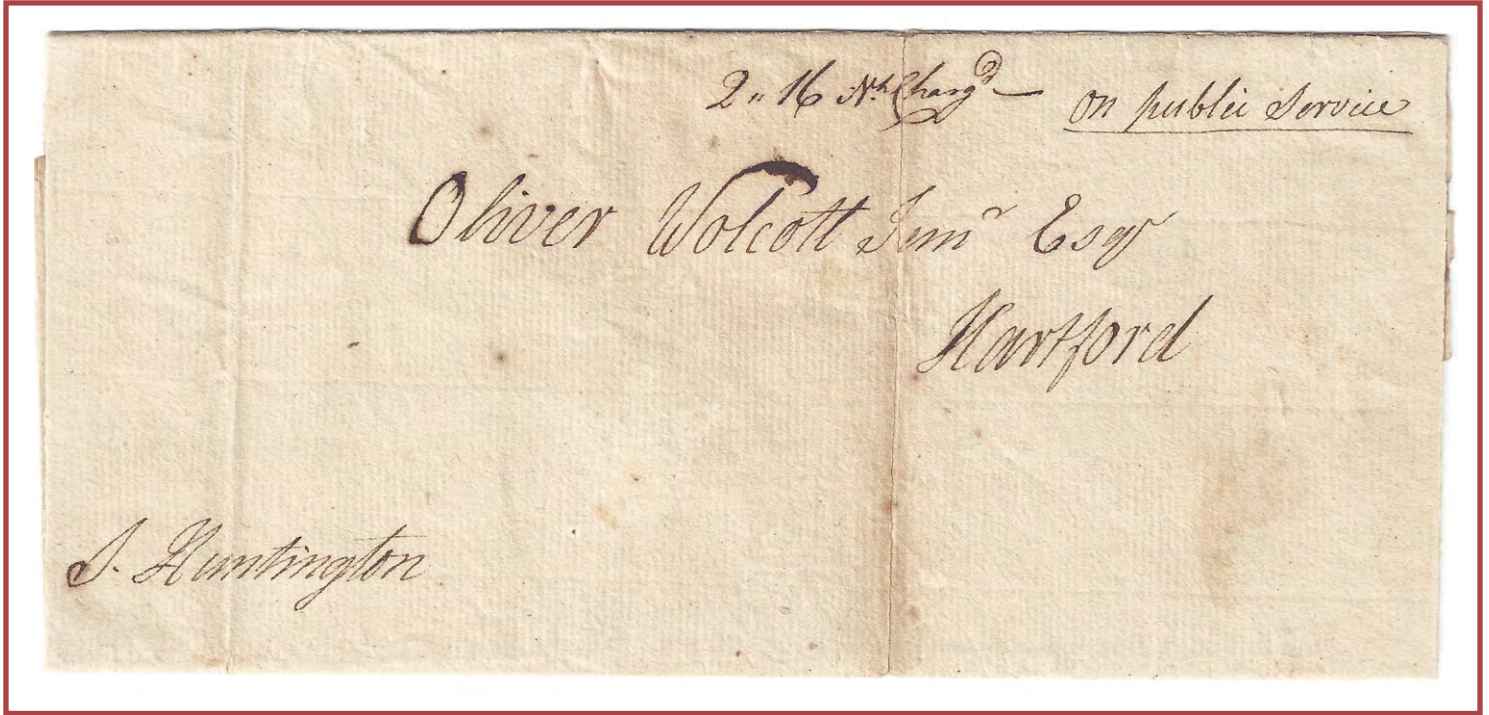 2 " 16 Nt. Chargd — on public Service
Oliver Wolcott Junr Esqr
Hartford
S. Huntington